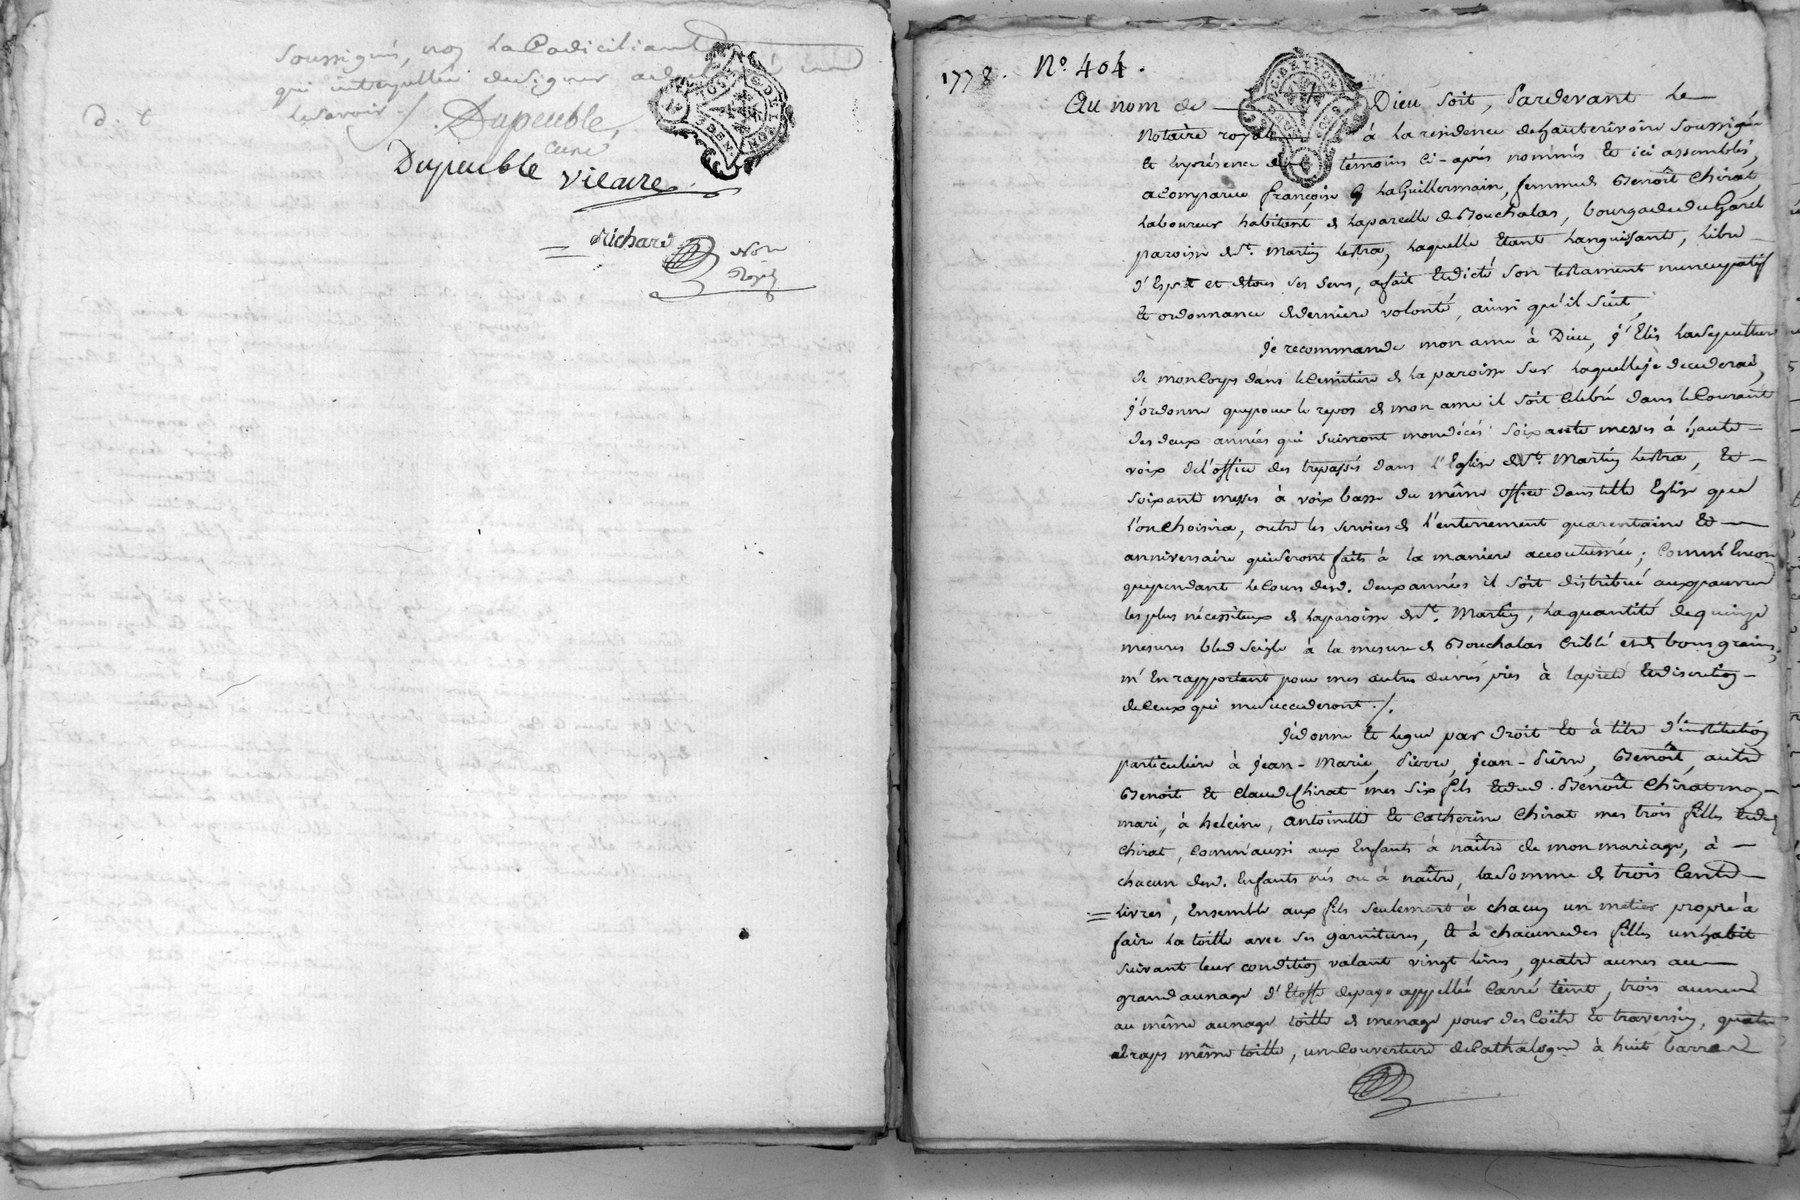 soussigné, non la Codiciliante
qui interpellée de signer a declaré
le savoir ./.
Dupeuble,
Curé
Dupeuble vicaire.
Richard
Nore
Royal
1778. No. 404.
Au nom de Dieu, soit, Pardevant le
Notaire royal à la résidence de hauterivoire soussigné
Et en présence des témoins ci-après nommés Et ici assemblés,
a Comparue françoise Laguillermain, femme de Benoît Chirat
laboureur habitent de la parcelle de Bouchalas, bourgade du
paroisse de St. Martin Lestra, laquelle Etant Languissante, libre
d'Esprit et de tous ses sens, a fait Et dicté son testament nuncupatif
Et ordonnance de derniere volonté, ainsi qu'il suit,
Je recommande mon ame à Dieu, j'Elis la sepulture
de mon Corps dans le Cemitiere de la paroisse sur laquelle je decederai,
j'ordonne que pour le repos de mon ame il soit Celebré dans le Courant
des deux années qui suivront mon décès soixante messes à haute
voix de l'office des trepassés dans l'Eglise de St. Martin Lestra, Et
soixante messes à voix basse du même office dans telle Eglise que
l'on Choisira, outre les services de l'enterrement quarentaine Et
anniversaire qui seront faits à la maniere accoutumée; Comm'Encore
que pendant le Cours desd. deux années il soit distribué aux pauvres
les plus nécessiteux de la paroisse de St. Martin, la quantité de quinze
mesures bled seigle à la mesure de Bouchalas Criblé et de bons grains,
m'En rapportant pour mes autres œuvres pies à la pieté Et discretion
de Ceux qui me succederont ./.
Je donne Et legue par droit Et à titre d'institution
particuliere à Jean-Marie, Pierre, Jean-Pierre, Benoît, autre
Benoît Et Claude Chirat mes six fils Et dud. Benoît Chirat mon
mari, à heleine, Antoinette Et Catherine Chirat mes trois filles Et dud.
Chirat, Comm'aussi aux Enfants à naître de mon mariage, à
chacun desd. Enfants nés ou à naître, la somme de trois Cents
livres, Ensemble aux fils seulement à chacun un metier propre à
faire la toille avec ses garnitures, Et à chacune des filles un habit
suivant leur condition valant vingt livres, quatre aunes au
grand aunage d'Etoffe de pays appellée Carré teint, trois aunes
au même aunage toille de menage pour des Coëtre Et traversin, quatre
draps même toille, une Couverture de Cathalogne à huit barres